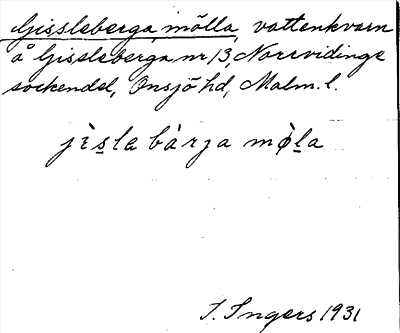 Gissleberga mölla, vattenkvarn
å Gissleberga nr 13, Norrvidinge
sockendel, Onsjö hd, Malm. l.
jìsla bàrja mø̀la
I. Ingers 1931